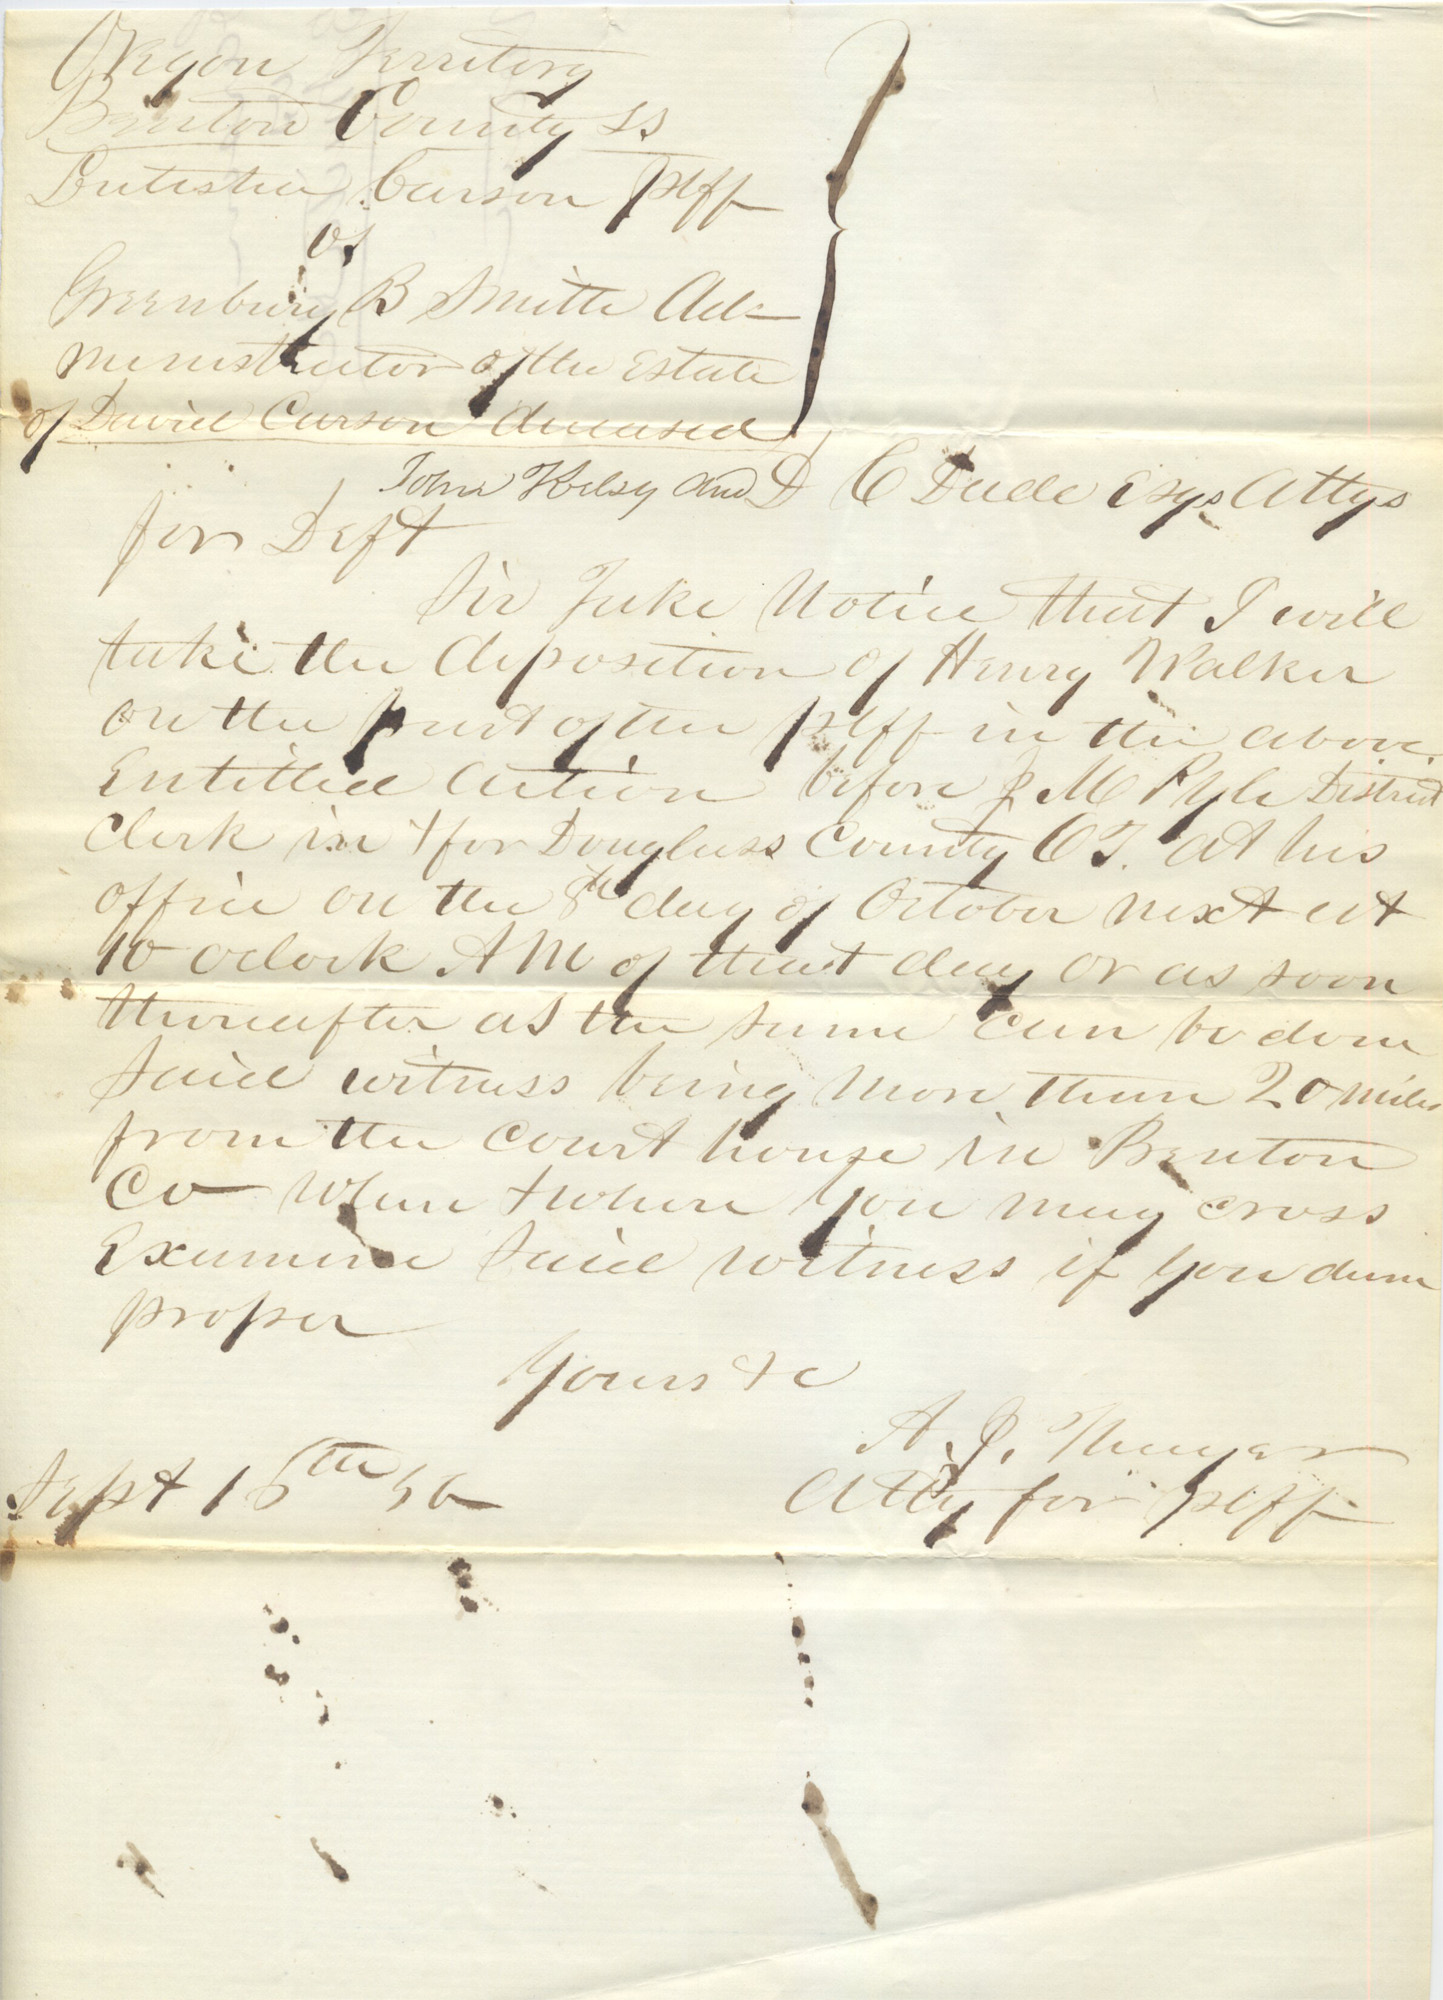 Oregon Territory
Benton County ss
Lutishia Carson plff
vs
Greenbury B Smith Ad-
ministrator of the Estate
of David Carson deceased
John Kelsy and D C Dade Esqs Attys
for Deft
Sir Take Notice that I will
take the deposition of Henry Walker
on the part of the plff in the above
Entitled Action before J M Pyle District
Clerk in & for Douglass County O T. at his
office on the 8th day of October next at
10 oclock A M of that day or as soon
thereafter as the same can be done
Said witness being more than 20 miles
from the court house in Benton
Co When & where you may cross
Examine Said witness if you deem
proper
Yours &c
A. J. Thayer
Atty for plff
Sept 15th 56